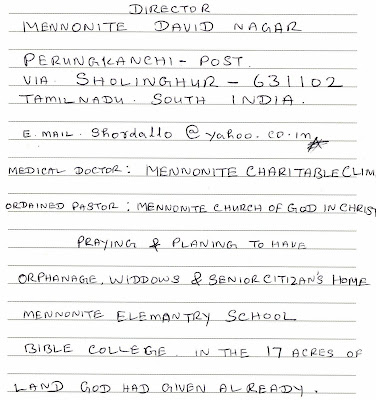 DIRECTOR
MENNONITE DAVID NAGAR
PERUNGKANCHI - POST.
VIA. SHOLINGHUR - 631102
TAMILNADU. SOUTH INDIA.
E.MAIL. Shordallo @ yahoo.co.in
MEDICAL DOCTOR: MENNONITE CHARITABLE CLIM
ORDAINED PASTOR: MENNONITE CHURCH OF GOD IN CHRIST
PRAYING & PLANING TO HAVE
ORPHANAGE, WIDDOWS & SENIOR CITIZAN'S HOME
MENNONITE ELEMANTRY SCHOOL
BIBLE COLLEGE. IN THE 17 ACRES OF
LAND GOD HAD GIVEN ALREADY.